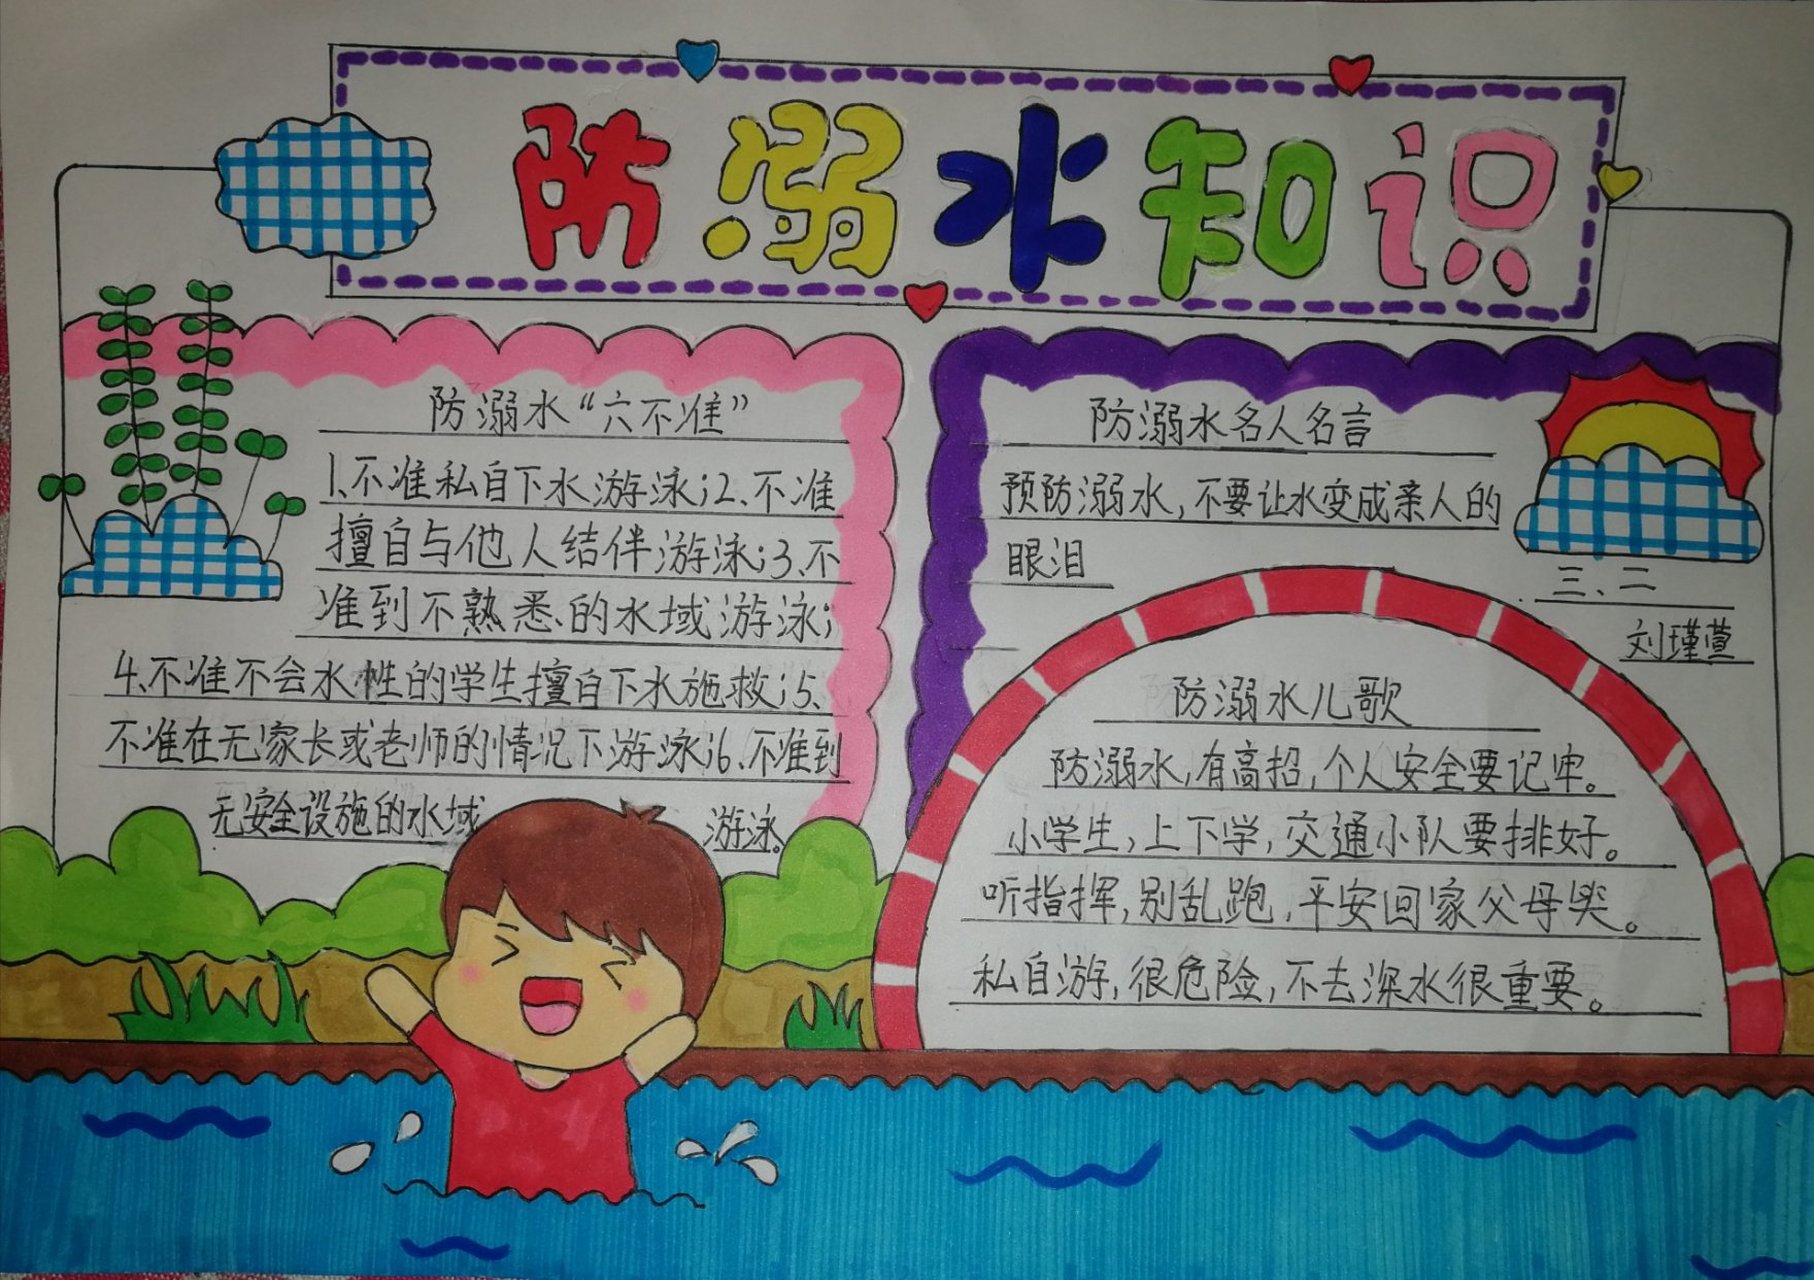 防溺水知识
防溺水“六不准”
1、不准私自下水游泳；2、不准
擅自与他人结伴游泳；3、不
准到不熟悉的水域游泳；
4、不准不会水性的学生擅自下水施救；5、
不准在无家长或老师的情况下游泳；6、不准到
无安全设施的水域 游泳。
防溺水名人名言
预防溺水，不要让水变成亲人的
眼泪
三、二
刘瑾萱
防溺水儿歌
防溺水，有高招，个人安全要记牢。
小学生，上下学，交通小队要排好。
听指挥，别乱跑，平安回家父母
私自游，很危险，不去深水很重要。